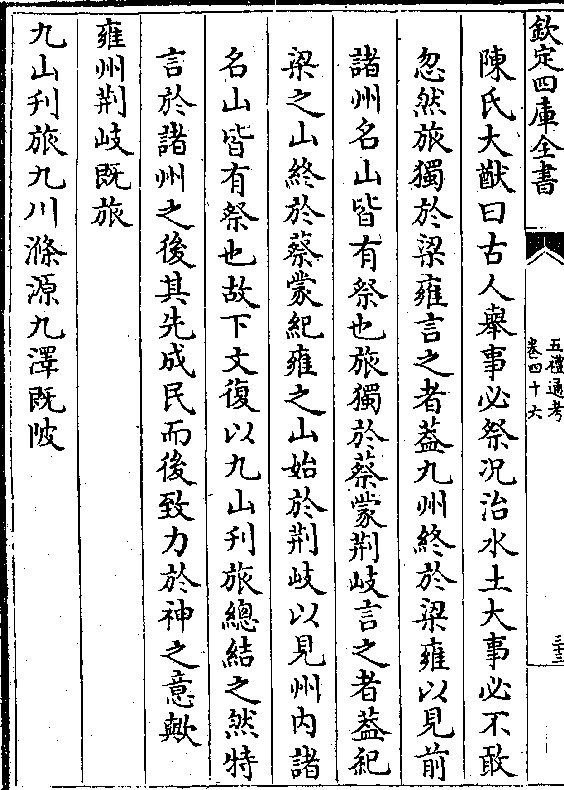 欽定四庫全書
五禮通考
卷四十六
三十三
陳氏大猷曰古人舉事必祭況治水土大事必不敢
忽然旅獨於梁雍言之者葢九州終於梁雍以見前
諸州名山皆有祭也旅獨於蔡蒙荆岐言之者葢祀
梁之山終於蔡蒙紀雍之山始於荆岐以見州内諸
名山皆有祭也故下文復以九山刋旅總結之然特
言於諸州之後其先成民而後致力於神之意歟
雍州荆岐既旅
九山刋旅九川滌源九澤既陂